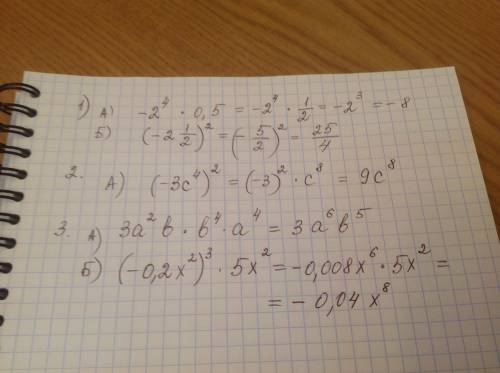 1) А) -2⁴ · 0,5 = -2⁴ · 1/2 = -2³ = -8
Б) (-2 1/2)² = (-5/2)² = 25/4
2. А) (-3c⁴)² = (-3)² · c⁸ = 9c⁸
3. А) 3a²b · b⁴ · a⁴ = 3a⁶b⁵
Б) (-0,2x²)³ · 5x² = -0,008x⁶ · 5x² =
= -0,04x⁸